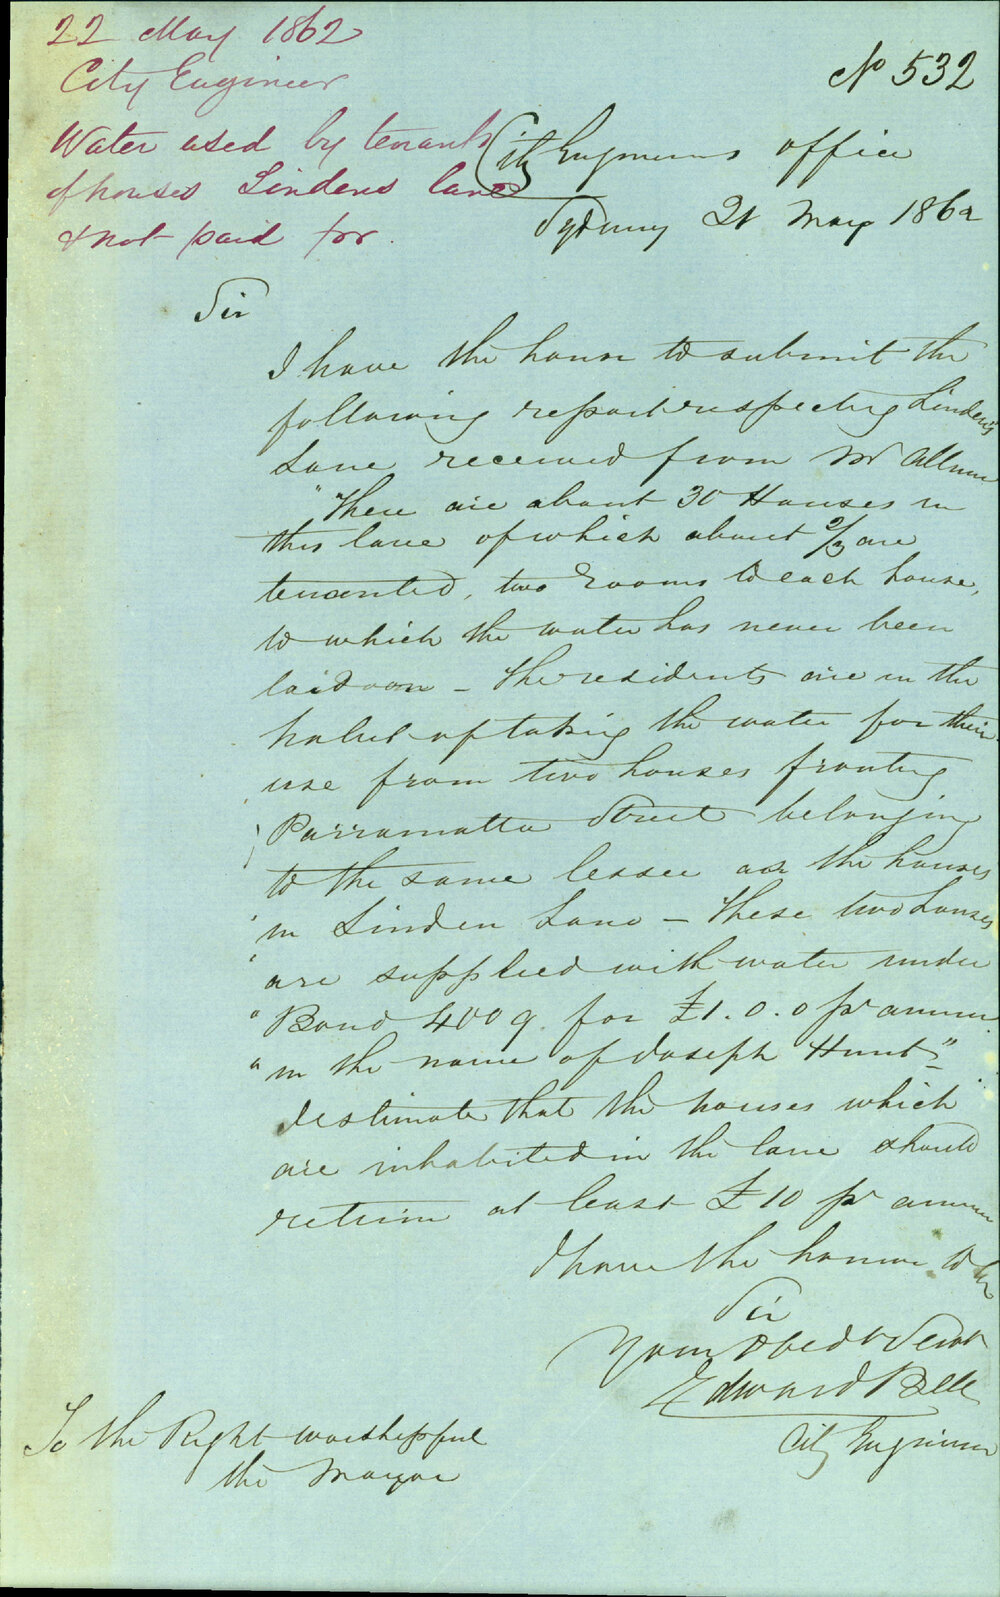 22 May 1862
City Engineer
Water used by tenants
of houses Lindens lane
& not paid for.
No 532
City Engineers office
Sydney 21 May 1862
Sir
I have the honor to submit the
following report respecting Linden's
Lane received from Mr Allum
"There are about 30 Houses in
this lane of which about 2/3 are
tenanted, two rooms to each house,
to which the water has never been
laid on - The residents are in the
habit of taking the water for their
use from two houses fronting
Parramatta Street belonging
to the same lessee as the houses
in Linden Lane - These two houses
"are supplied with water under
"Bond 4009 for £1.0.0 pr annum
"in the name of Joseph Hunt"-
I estimate that the houses which
are inhabited in the lane should
return at least £10 pr annum
I have the honor to be
Sir
Your Obedt Servt
Edward Bell
City Engineer
To the Right worshipful
the Mayor